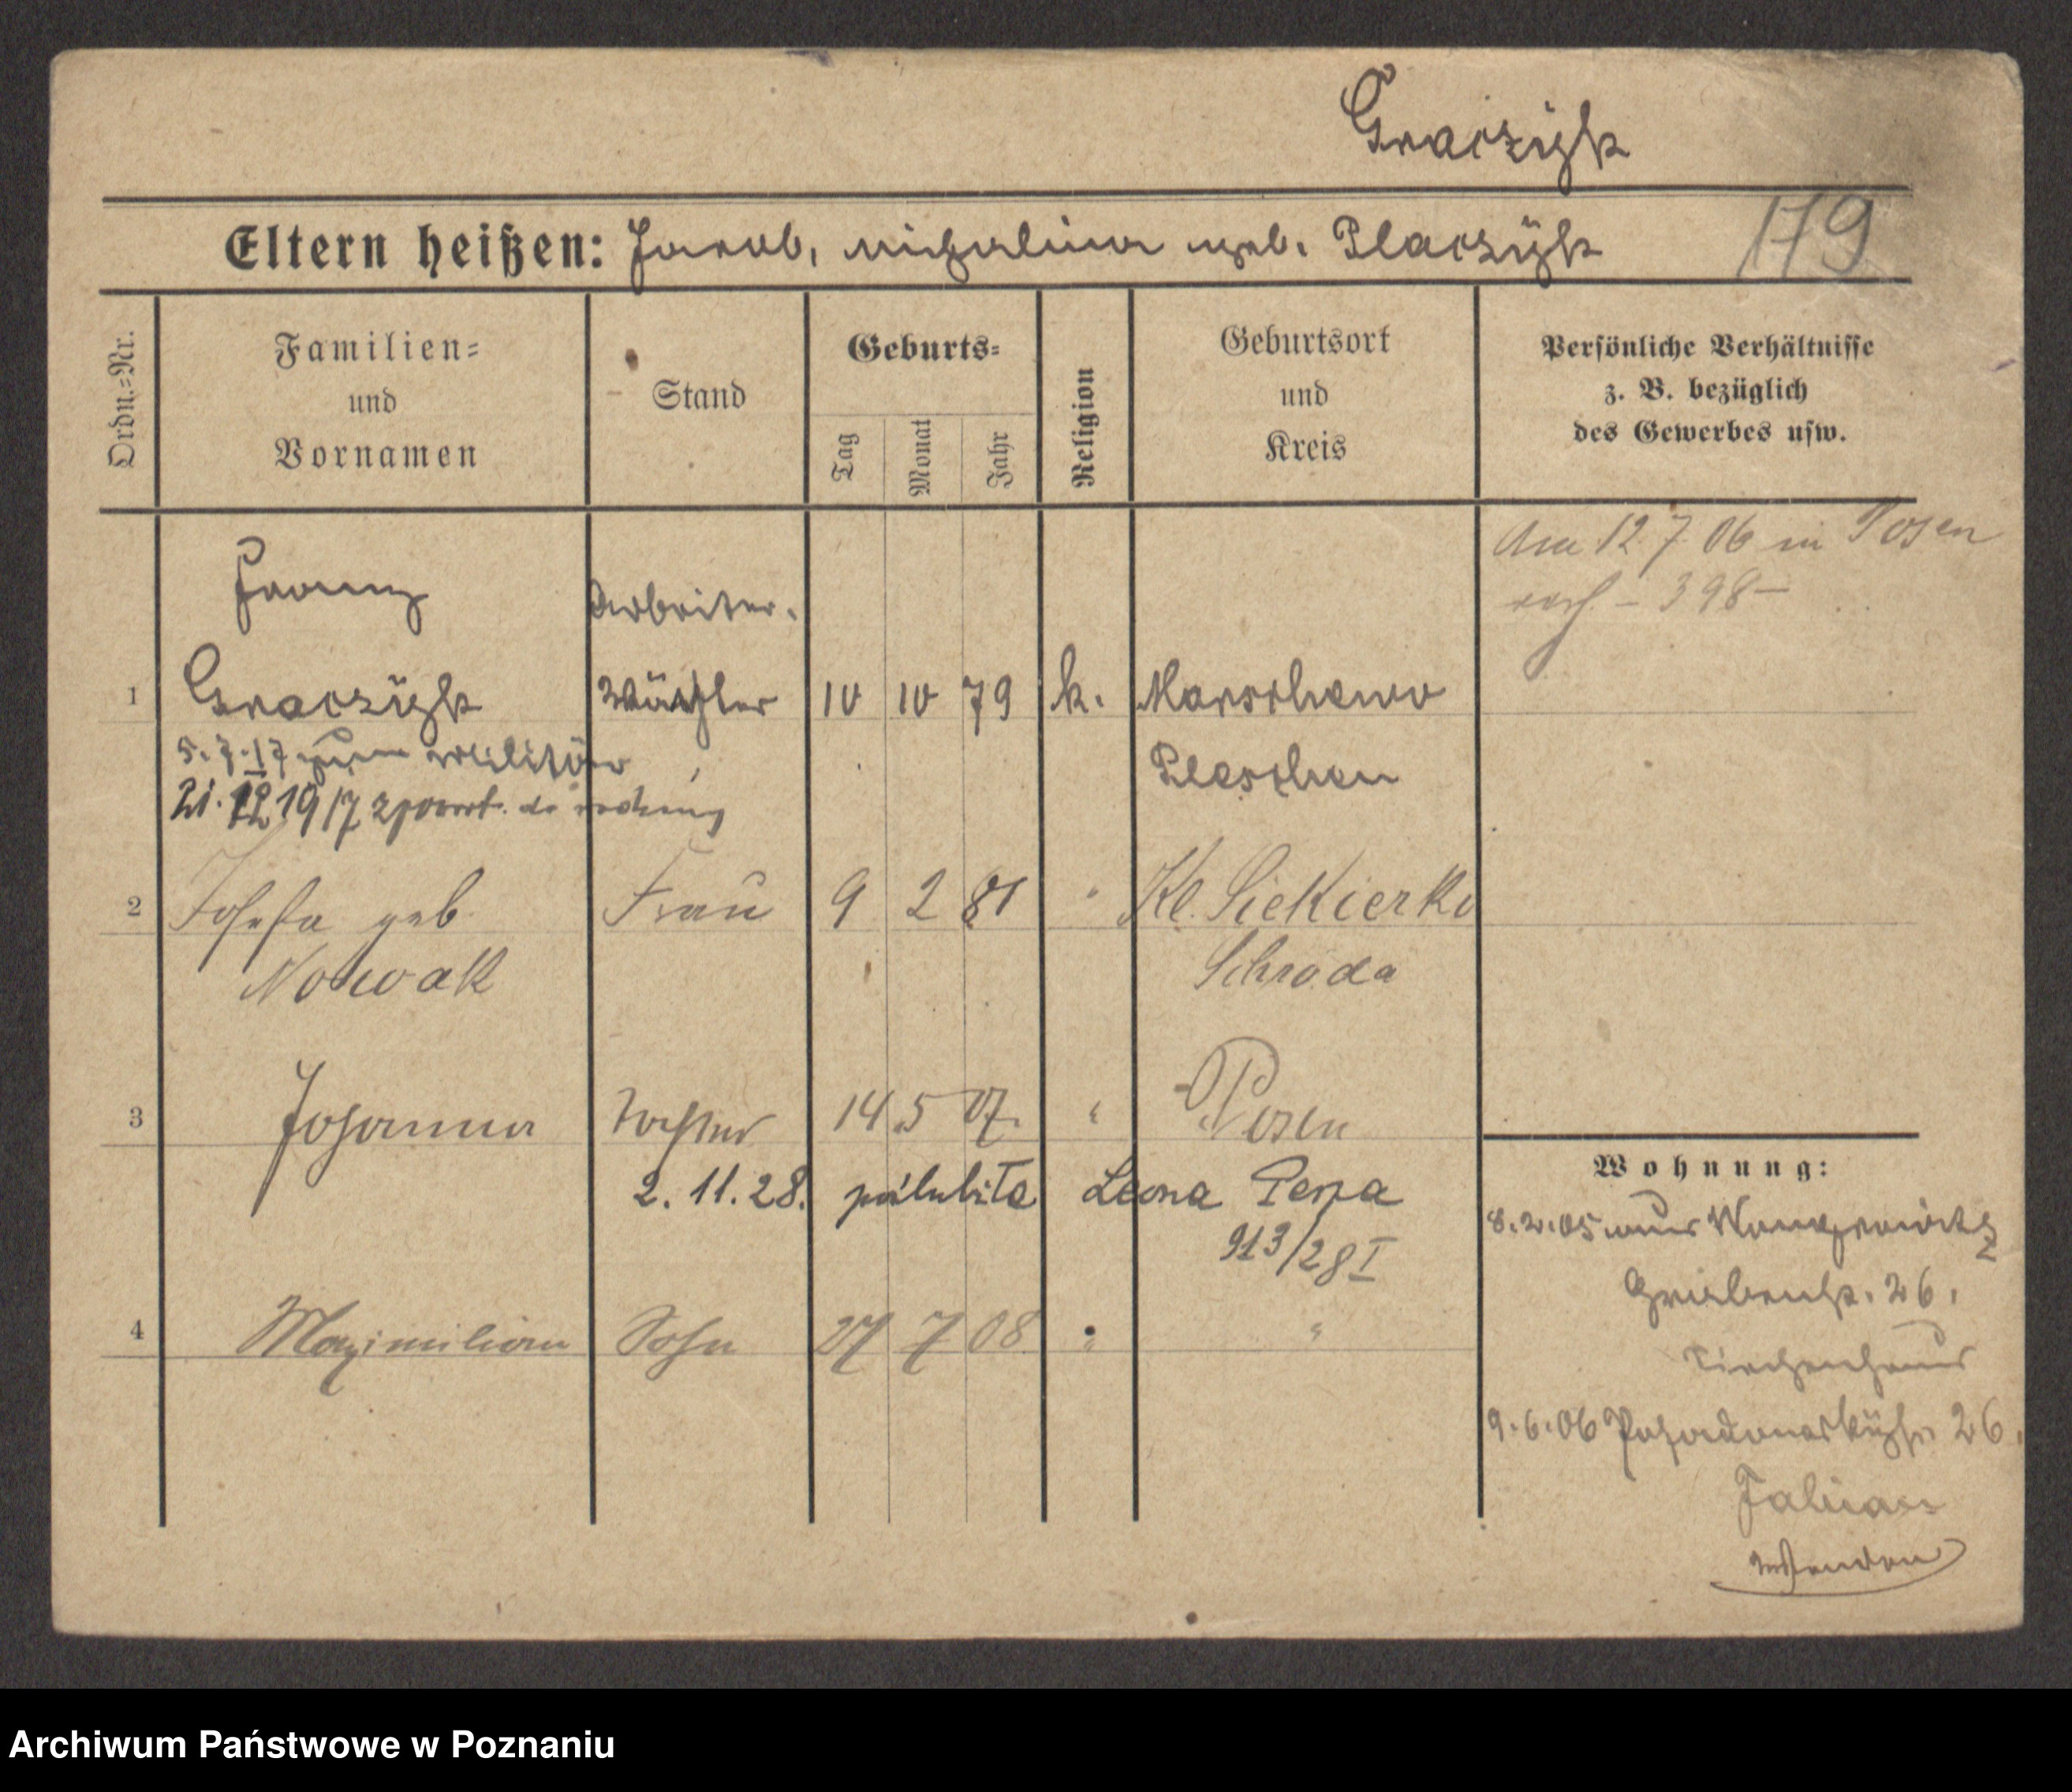 Graczyk
Eltern heißen: Jacob, Michalina geb. Placzyk
179
Ordn.=Nr.
Familien=
und
Vornamen
Stand
Geburts=
Tag
Monat
Jahr
Religion
Geburtsort
und
Kreis
Persönliche Verhältnisse
z. B. bezüglich
des Gewerbes usw.
Am 12 7 06 in Posen
- 398 -
Franz
Arbeiter.
1 Graczyk Wächter 10 10 79 k. Marschewo
5.7.17 zum Militär
Pleschen
21.12 1917 zpowrt. do rodziny
2 Josefa geb. Frau 9 2 81 " Kl. Siekierki
Nowak Schroda
3 Johanna Tochter 14 5 07. " Posen
2. 11. 28. poślubiła Leona Pera
913/28 I
4 Maximilian Sohn 27 7 08 " "
Wohnung:
8.2.05 aus Wongrowitz
Grabenstr. 26.
9.6.06 26.
Fabian